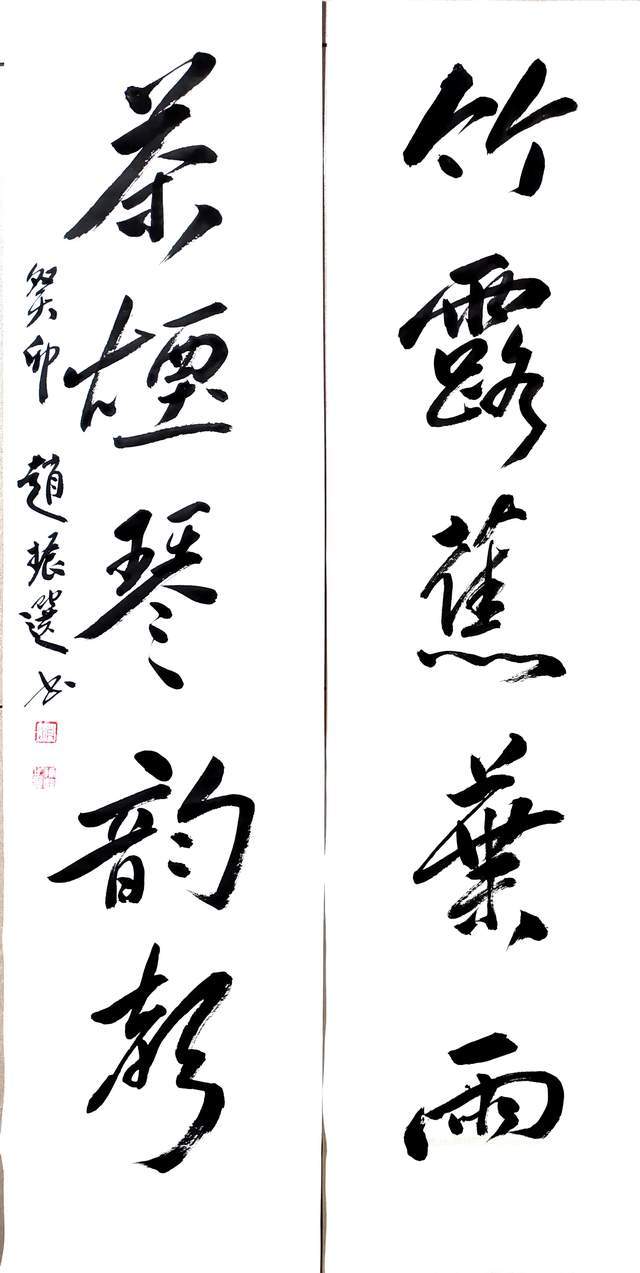 竹露蕉葉雨
茶煙琴韵聲
癸卯 趙振選书